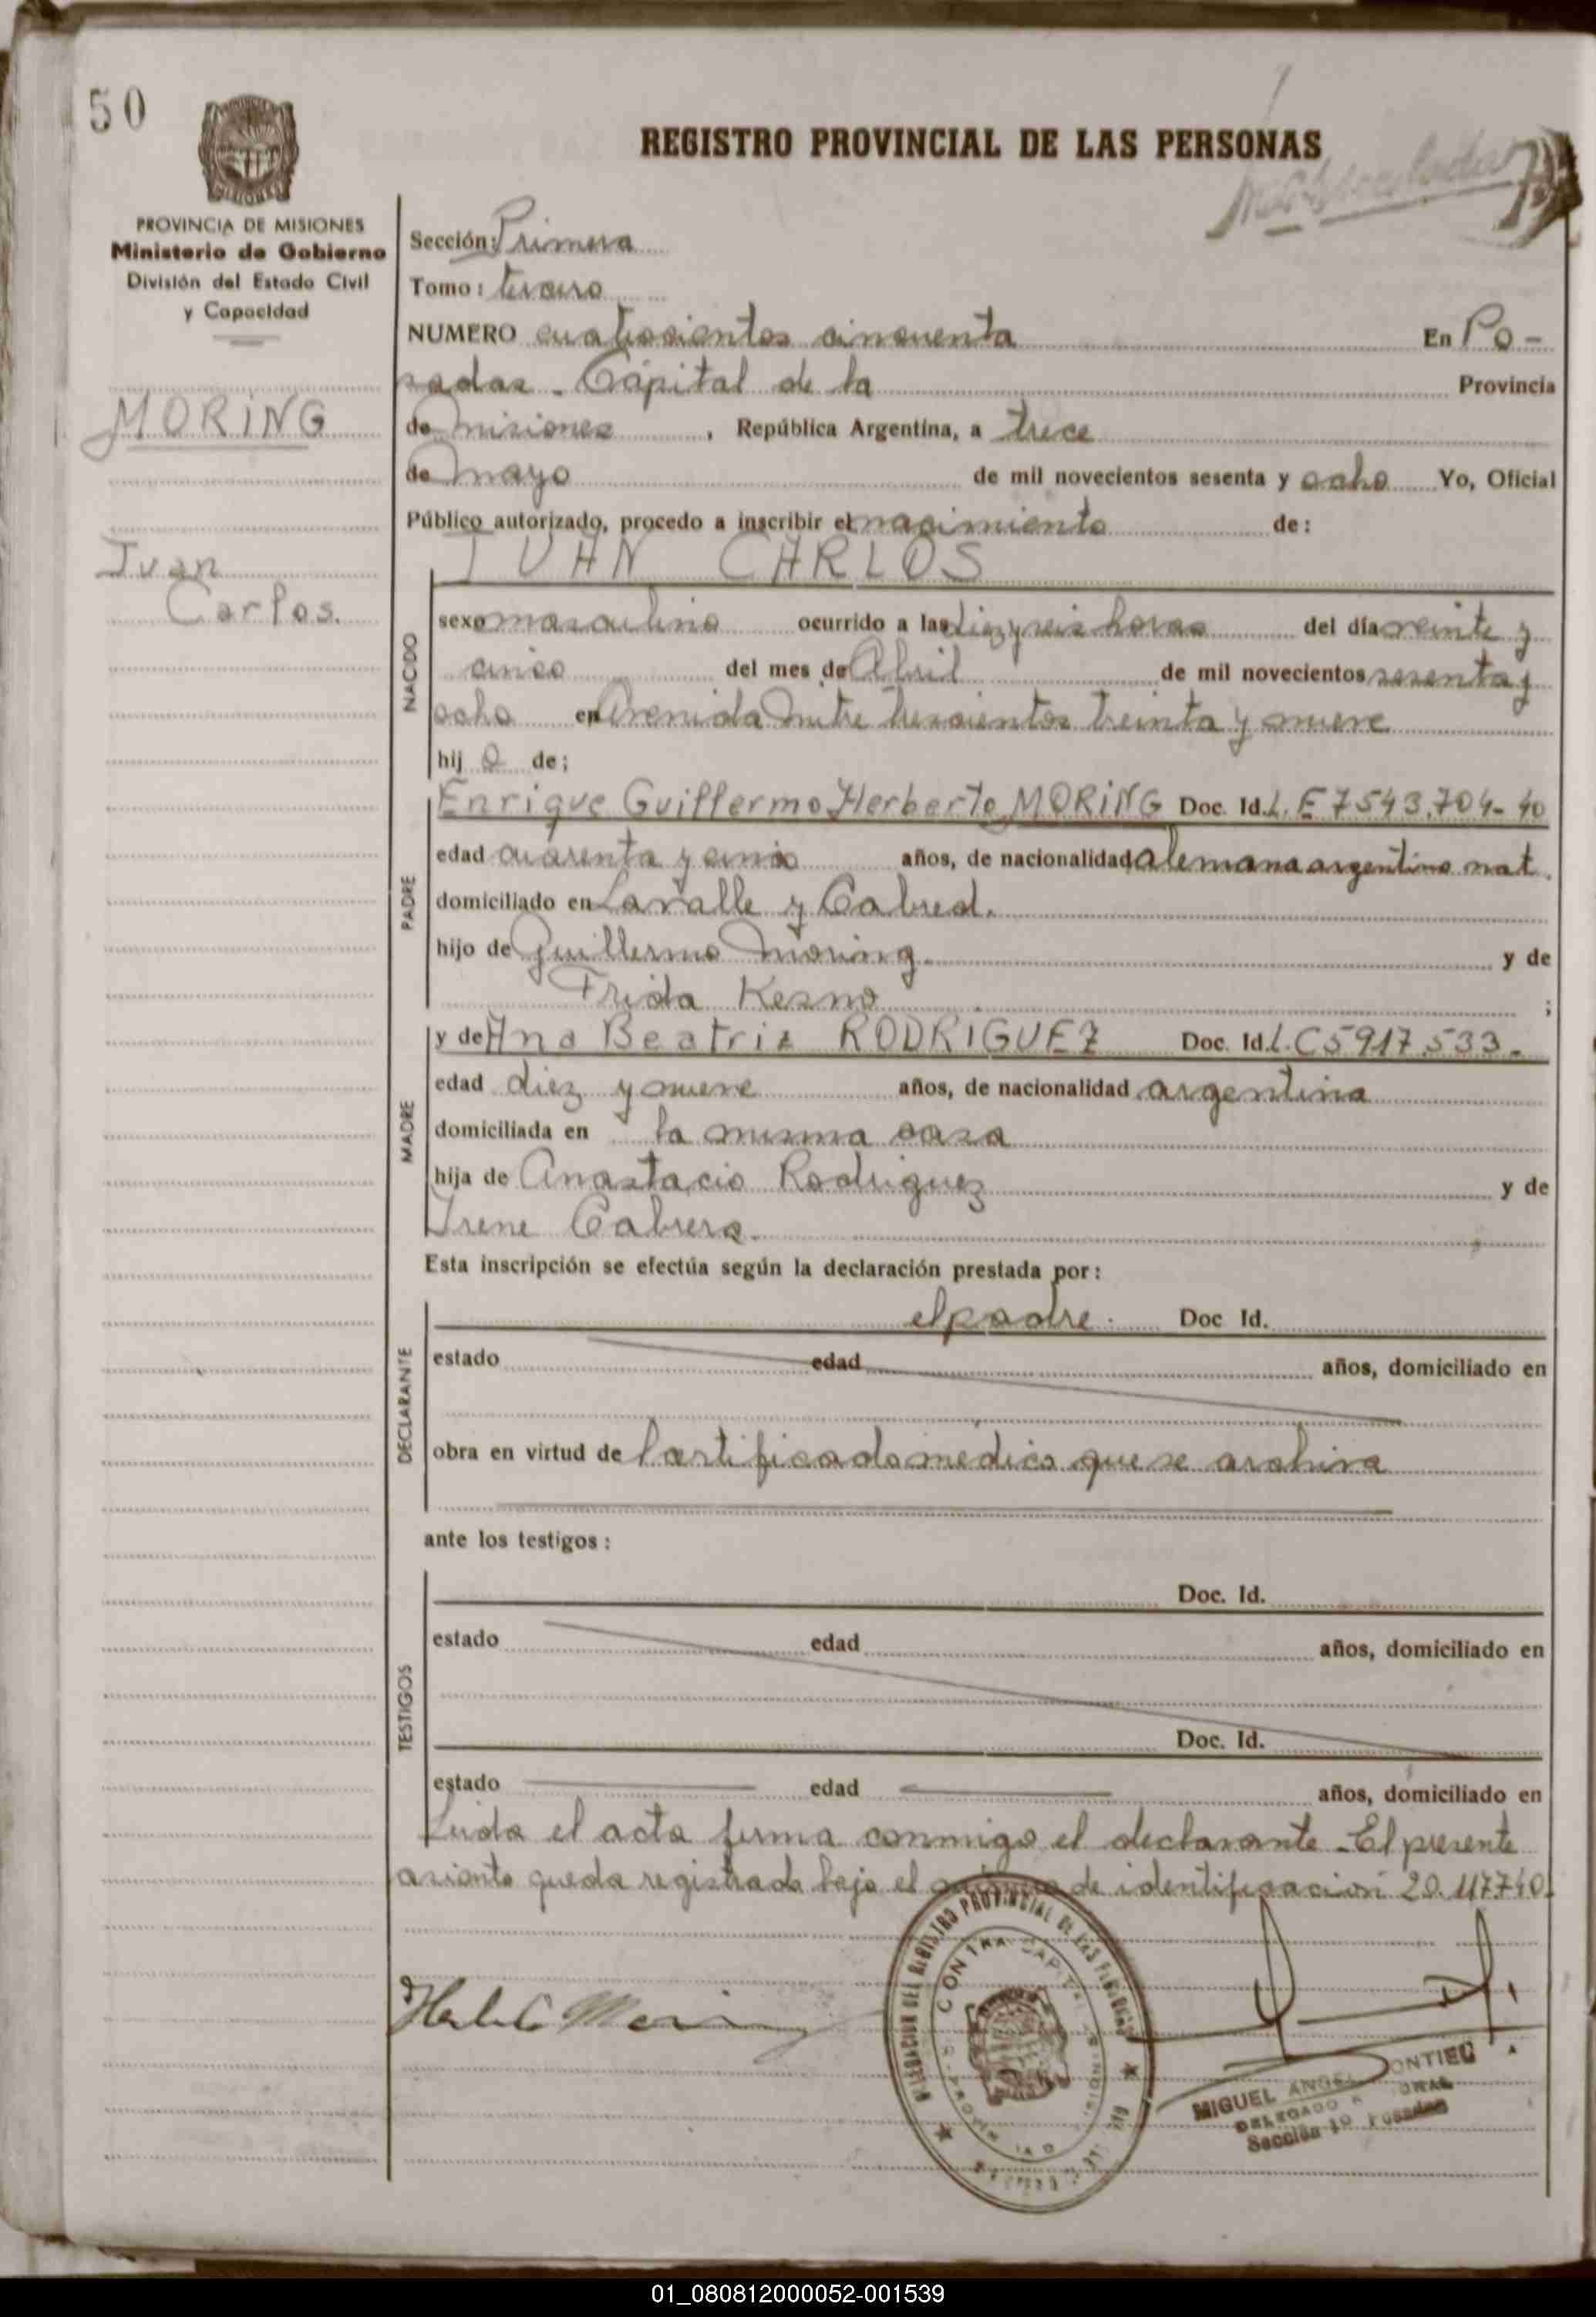 50
REGISTRO PROVINCIAL DE LAS PERSONAS
PROVINCIA DE MISIONES
Ministerio de Gobierno
División del Estado Civil
y Capacidad
MORING
Juan
Carlos.
Sección: Primera
Tomo: tercero
NUMERO cuatrocientos cincuenta En Po-
sadas - Capital de la Provincia
de Misiones, República Argentina, a trece
de mayo de mil novecientos sesenta y ocho Yo, Oficial
Público autorizado, procedo a inscribir el nacimiento de:
JUAN CARLOS
NACIDO
sexo masculino ocurrido a las diez y seis horas del día veinte y
cinco del mes de Abril de mil novecientos sesenta y
ocho en Avenida Mitre trescientos treinta y nueve
hij o de;
PADRE
Enrique Guillermo Herberto MORING Doc. Id. L. E 7543.704- 40
edad cuarenta y cinco años, de nacionalidad alemana argentino nat.
domiciliado en Lavalle y Cabred.
hijo de Guillermo Moring. y de
Frida ;
MADRE
y de Ana Beatriz RODRIGUEZ Doc. Id. L. C 5917.533.-
edad diez y nueve años, de nacionalidad argentina
domiciliada en la misma casa
hija de Anastacio Rodriguez y de
Irene Cabrera.
Esta inscripción se efectúa según la declaración prestada por:
DECLARANTE
el padre. Doc Id.
estado edad años, domiciliado en
obra en virtud de Certificado médico que se archiva
ante los testigos:
TESTIGOS
Doc. Id.
estado edad años, domiciliado en
Doc. Id.
estado edad años, domiciliado en
Leida el acta firma conmigo el declarante - El presente
asiento queda registrado bajo el número de identificación 20.117740.
DELEGACION DEL REGISTRO PROVINCIAL DE LAS PERSONAS
MIGUEL ANGEL
DELEGADO
Sección 1º Posadas
01_080812000052-001539